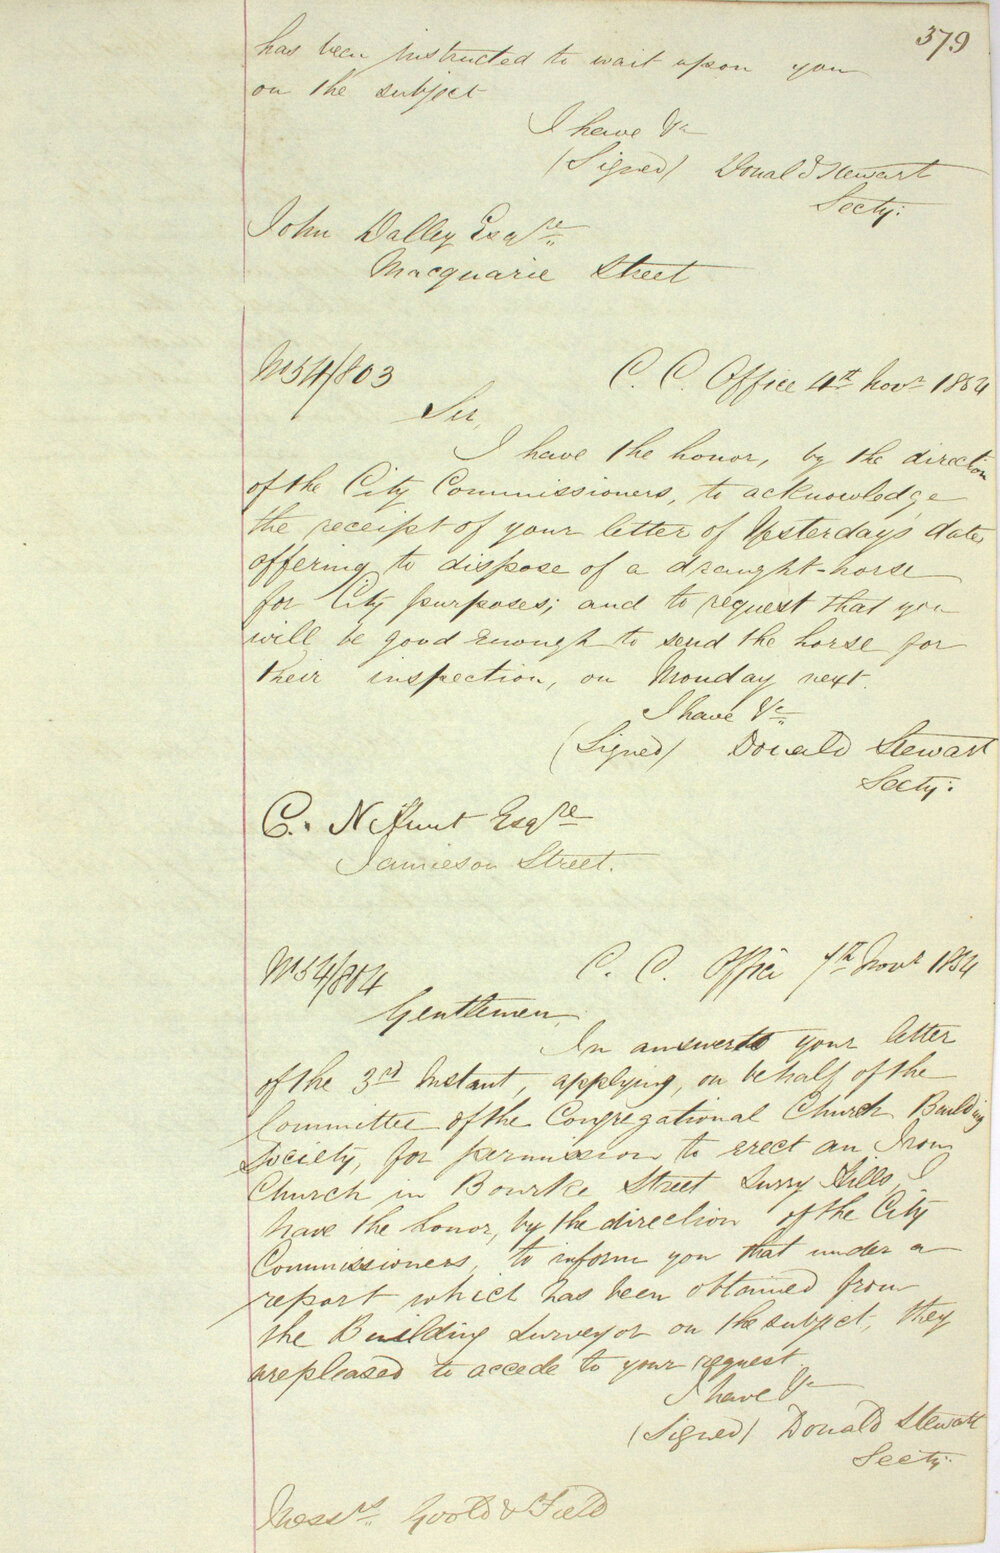 379
has been instructed to wait upon you
on the subject
I have &c
(Signed) Donald Stewart
Secty:
John Dalley Esqre
Macquarie Street
No 54/803
C. C. Office 4th Novr 1854
Sir,
I have the honor, by the direction
of the City Commissioners, to acknowledge
the receipt of your letter of Yesterday's date,
offering to dispose of a draught-horse
for City purposes; and to request that you
will be good enough to send the horse for
their inspection, on Monday next.
I have &c
(Signed) Donald Stewart
Secty:
C. N Hunt Esqre
Jamieson Street.
54/804
C. C. Office 7th Novr 1854
Gentlemen,
In answer to your letter
of the 3rd Instant, applying, on behalf of the
Committee of the Congregational Church Building
Society, for permission to erect an Iron
Church in Bourke Street Surry Hills, I
have the honor, by the direction of the City
Commissioners, to inform you that under a
report which has been obtained from
the Building Surveyor on the subject, they
are pleased to accede to your request
I have &c
(Signed) Donald Stewart
Secty:
Messrs. & Field